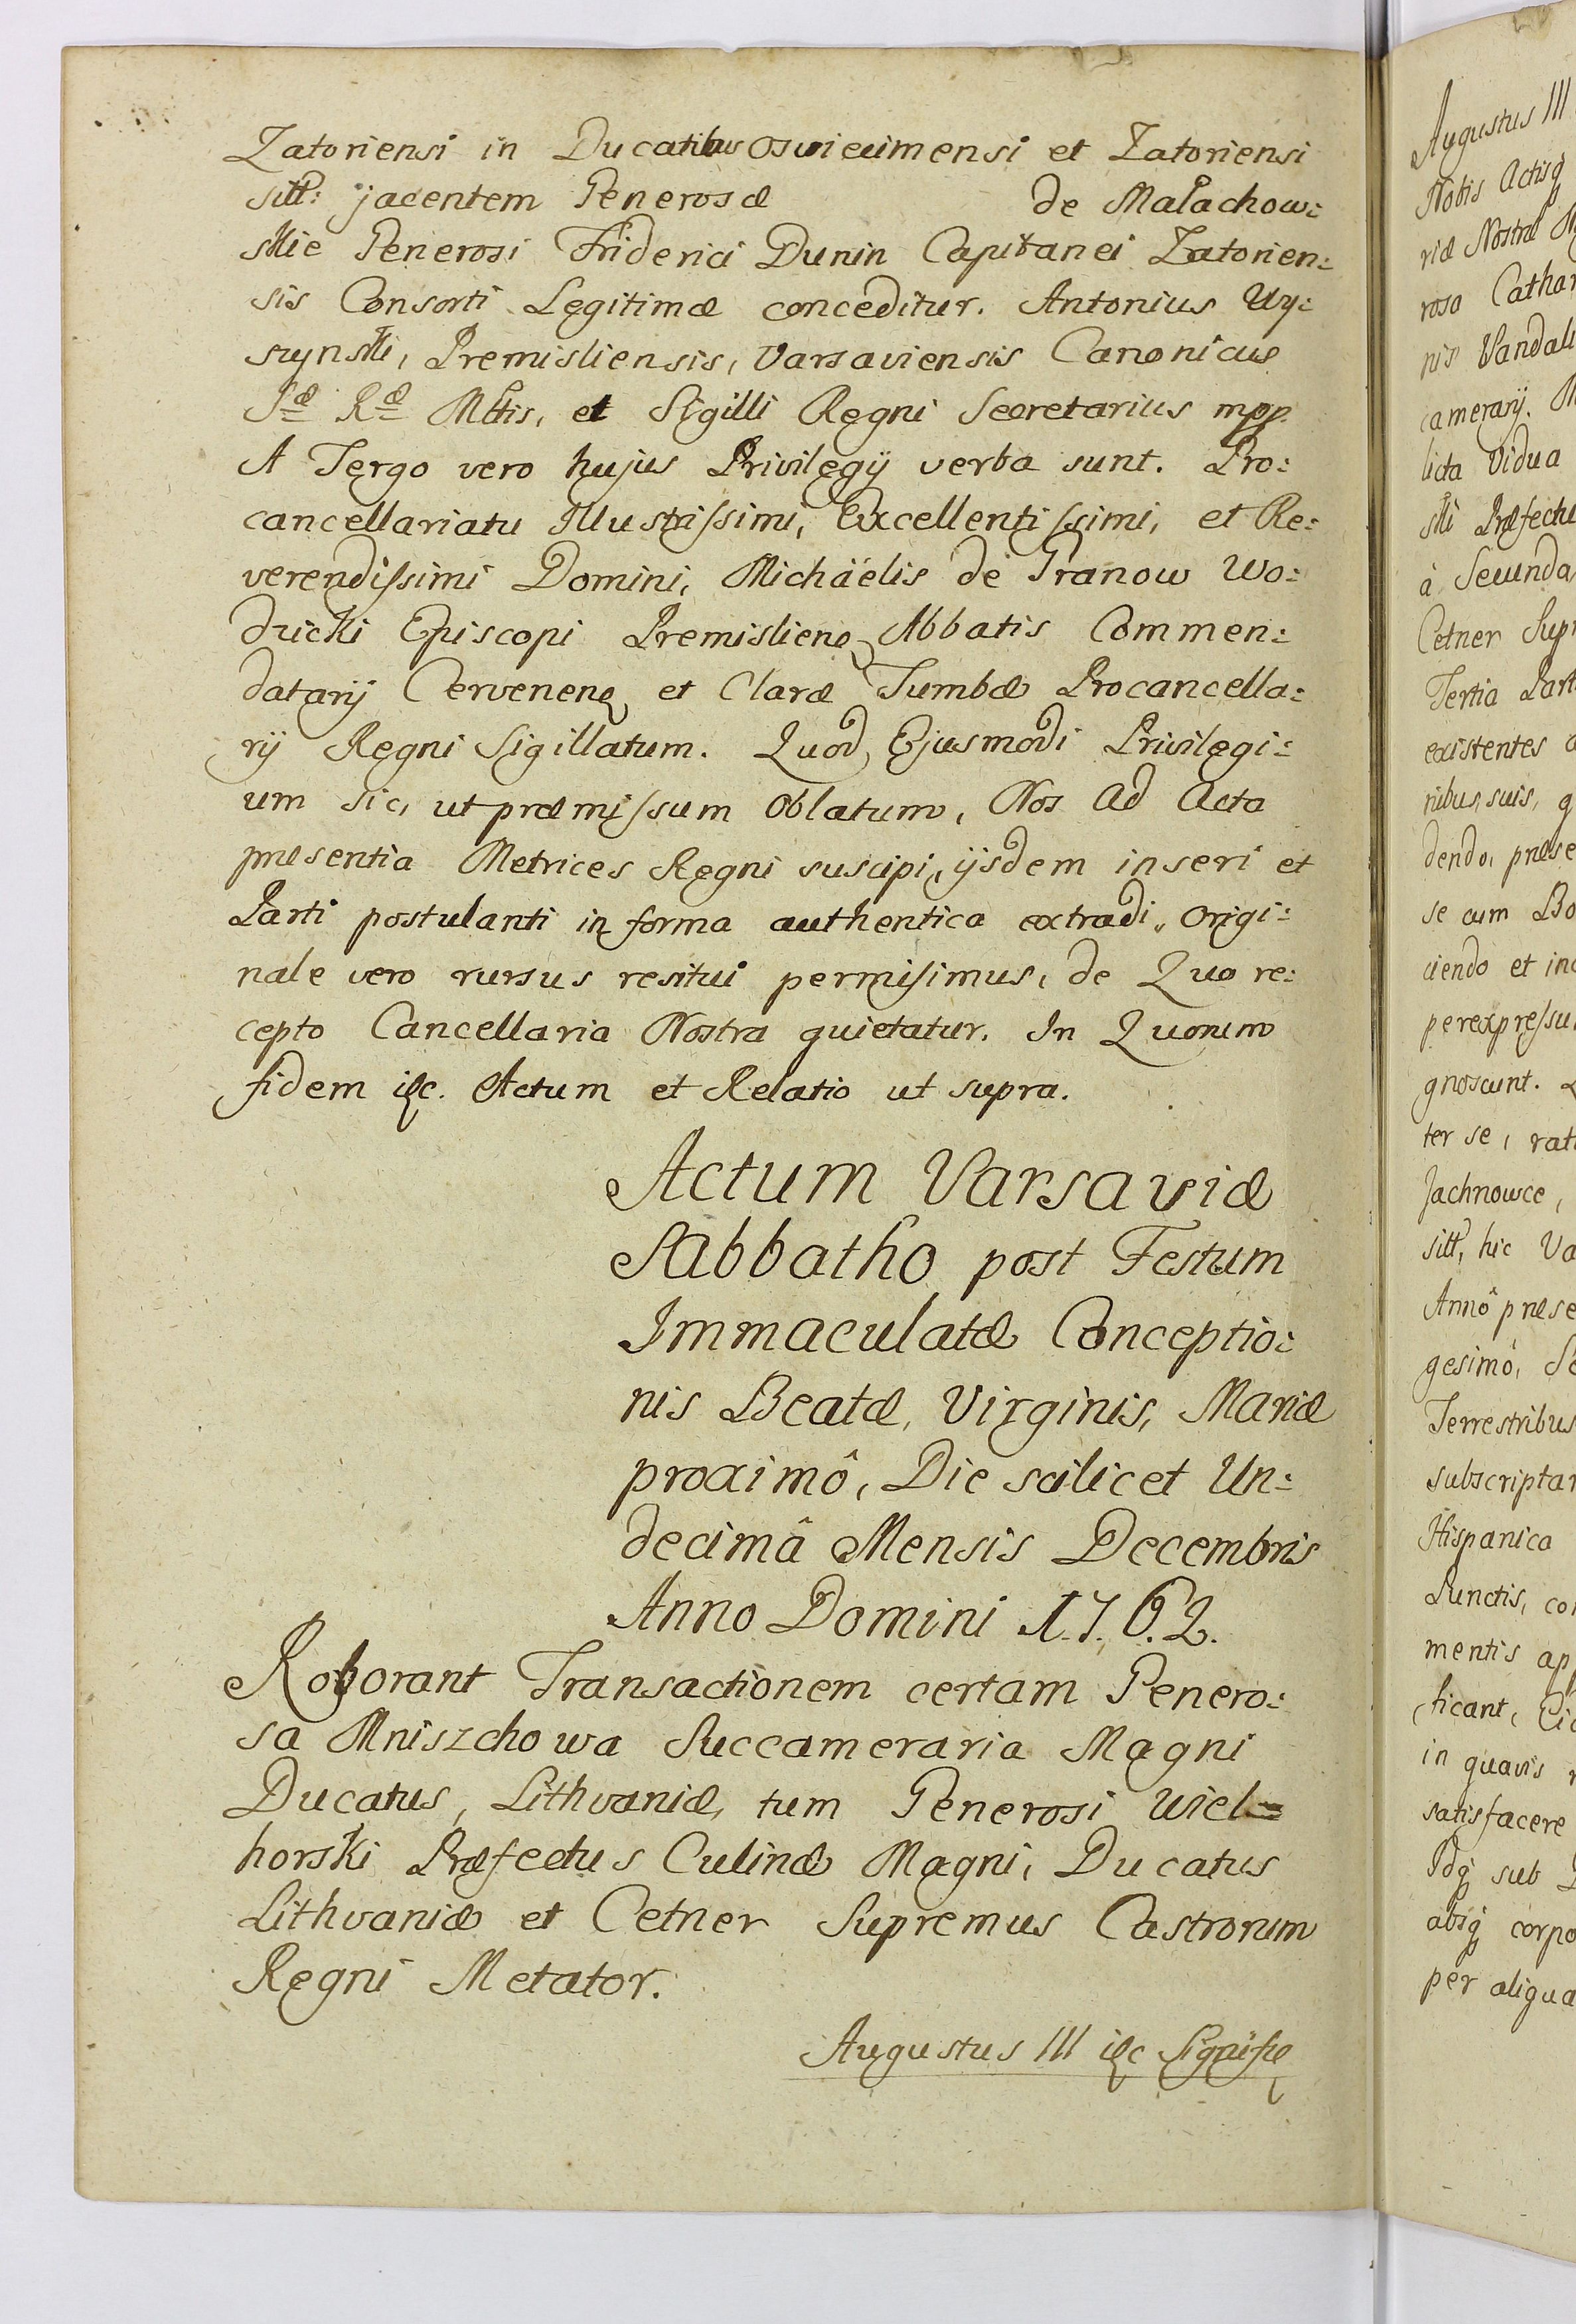 Zatoriensi in Ducatibus Oswiecimensi et Zatoriensi
sitt: jacentem Generosæ de Malachow:
skie Generosi Friderici Dunin Capitanei Zatorien:
sis Consorti Legitimæ conceditur. Antonius Wy:
szynski, Premisliensis, Varsaviensis Canonicus
Sæ Ræ Mttis, et Sigilli Regni Secretarius mpp.
A Tergo vero hujus Privilegij verba sunt. Pro:
cancellariatu Illustrissimi, Excellentissimi, et Re:
verendissimi Domini, Michäelis de Granow Wo:
dzicki Episcopi Premislien Abbatis Commen:
datarij Cervenen et Claræ Tumbæ Procancella:
rij Regni Sigillatum. Quod, Ejusmodi Privilegi:
um sic, ut præmissum Oblatum, Nos Ad Acta
præsentia Metrices Regni suscipi, ijsdem inseri et
Parti postulanti in forma authentica extradi, Origi:
nale vero rursus resitui permisimus, de Quo re:
cepto Cancellaria Nostra quietatur. In Quorum
fidem &c. Actum et Relatio ut supra.
Actum Varsaviæ
Sabbatho post Festum
Immaculatæ Conceptio:
nis Beatæ, Virginis, Mariæ
proximô, Die scilicet Un:
decimâ Mensis Decembris
Anno Domini 1.7.6.2.
Roborant Transactionem certam Genero:
sa Mniszchowa Succameraria Magni
Ducatus, Lithvaniæ, tum Generosi Wiel=
horski Præfectus Culinæ Magni, Ducatus
Lithvaniæ et Cetner Supremus Castrorum
Regni Metator.
Augustus III &c
Augustus III
Nobis Actisq
riæ Nostræ
rosa Cathar
nis Vandali
camerarij. M
licta Vidua
ski Præfectu
à Secunda
Cetner Supr
Tertia Part
existentes
nibus suis, q
dendo, præse
se cum Bo
ciendo et inc
per expressu
gnoscunt.
ter se, rat
Jachnowce,
sitt, hic Va
Annô præse
gesimô, Se
Terrestribus
subscriptar
Hispanica
Punctis, con
mentis ap
ficant,
in quavis
satisfacere
Idq sub
absq corpo
per aliqua